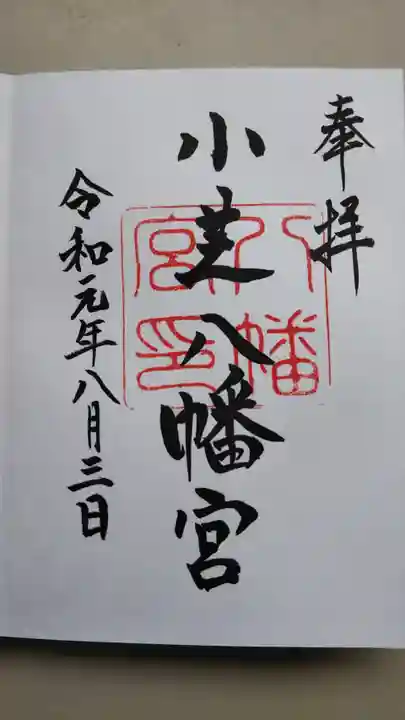 奉拝
小芝八幡宮
八幡宮印
令和元年八月三日